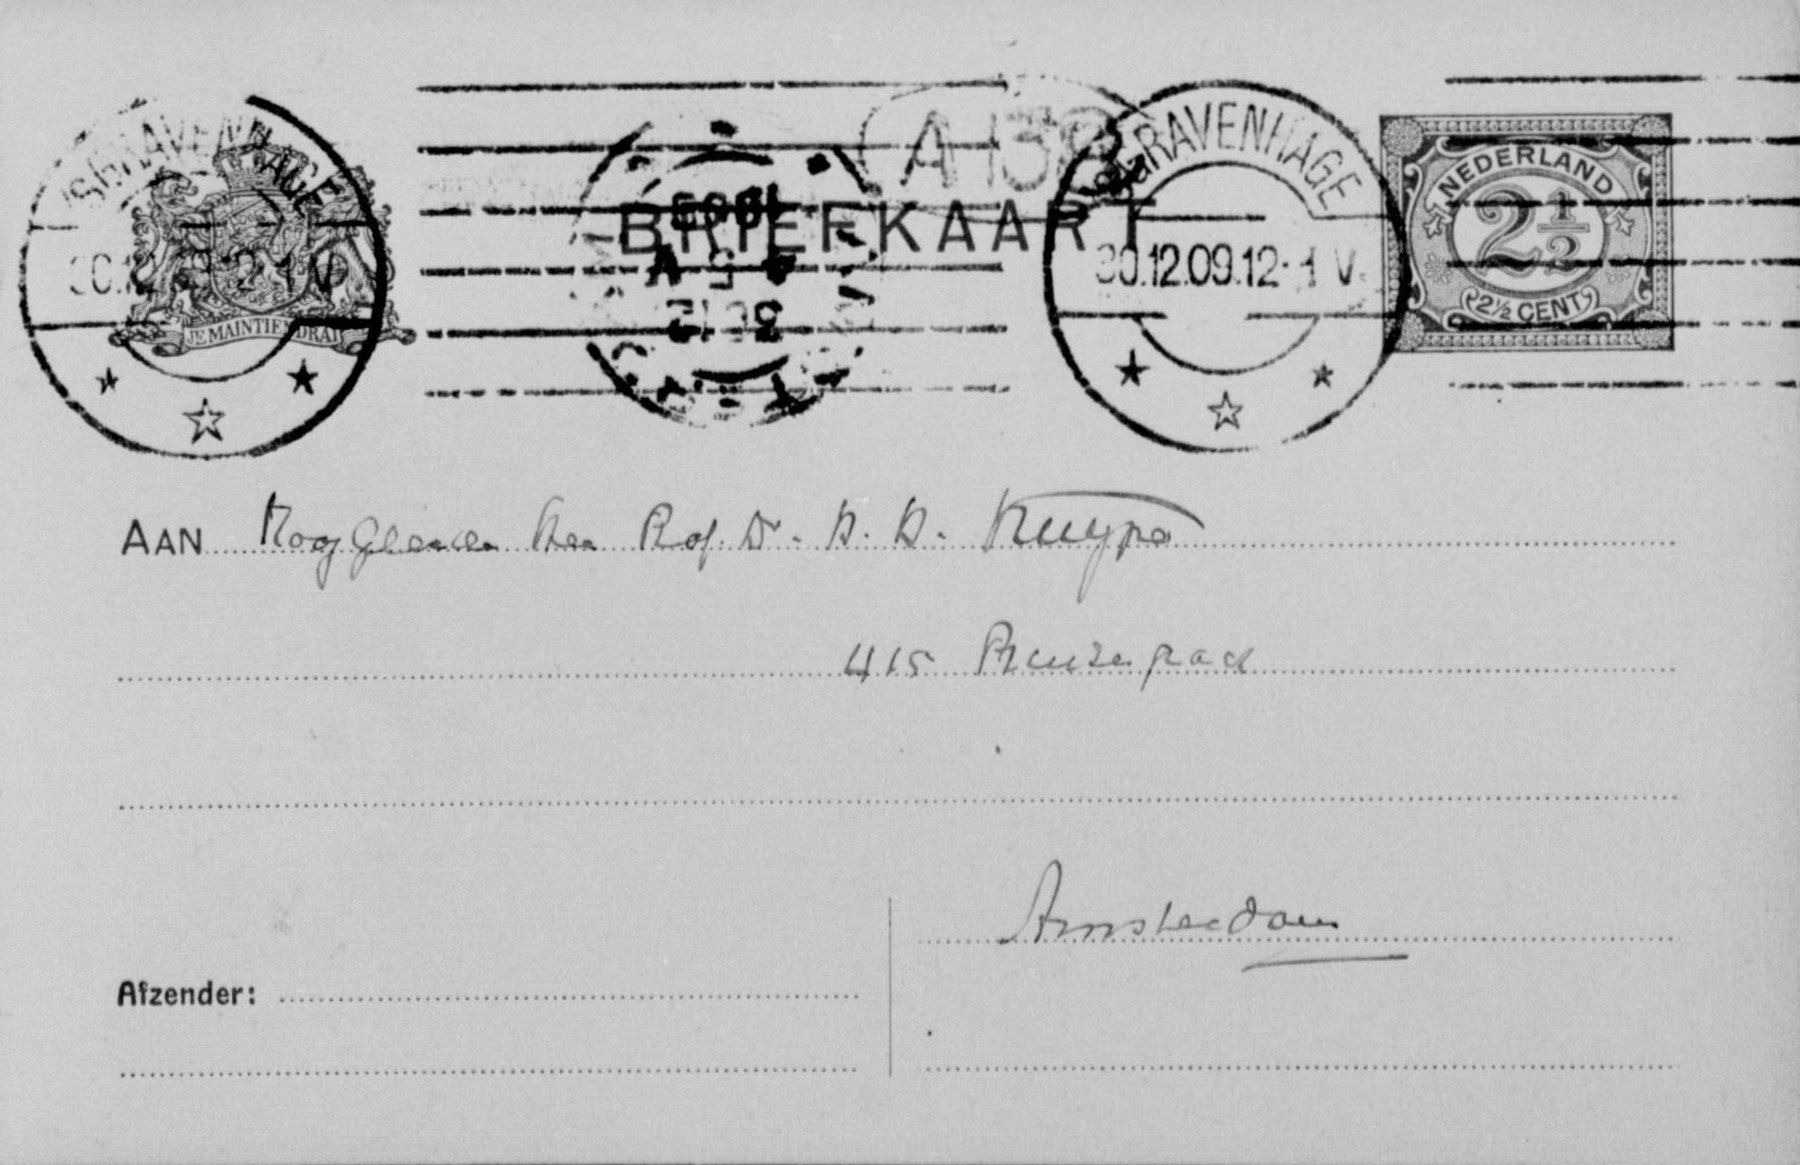 'SGRAVENHAGE
30.12.09.12-1 V.
JE MAINTIENDRAI
A 138
BRIEFKAART
1909
4-5 V
30 12
'SGRAVENHAGE
30.12.09.12-1 V.
NEDERLAND
2½
2½ CENT
AAN Hooggeleerden Heer Prof. Dr. H. H. Kuyper
415 Prinsengracht
Amsterdam
Afzender: